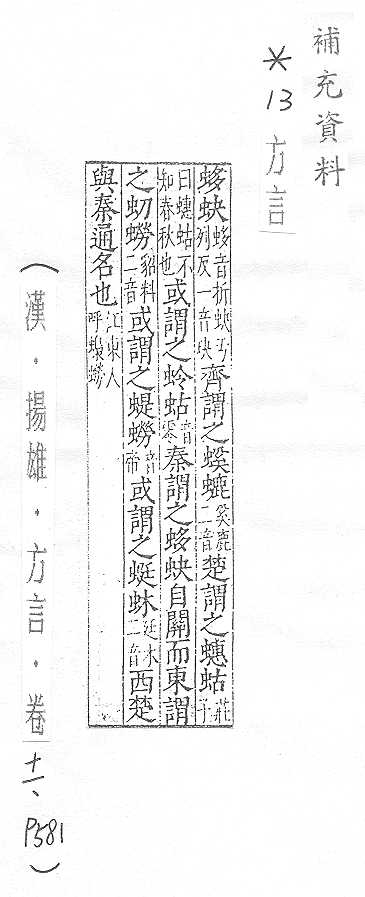 補充資料
*13 方言
蛥蚗蛥音折蚗于列反一音玦齊謂之螇螰奚鹿二音楚謂之蟪蛄莊子
曰蟪蛄不知春秋也或謂之蛉蛄音零秦謂之蛥蚗自關而東謂
之虭蟧貂料二音或謂之蝭蟧音帝或謂之蜓蚞廷木二音西楚
與秦通名也江東人呼蟧
(漢・揚雄・方言・卷十一、P581)